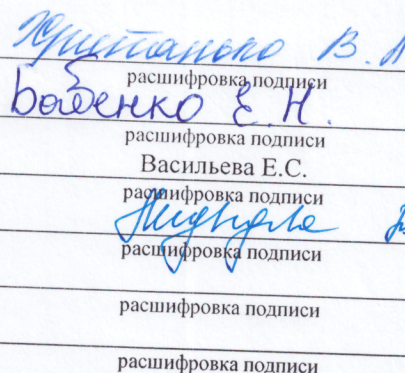 Христанько В.
расшифровка подписи
Бабенко Е.Н.
расшифровка подписи
Васильева Е.С.
расшифровка подписи
расшифровка подписи
расшифровка подписи
расшифровка подписи